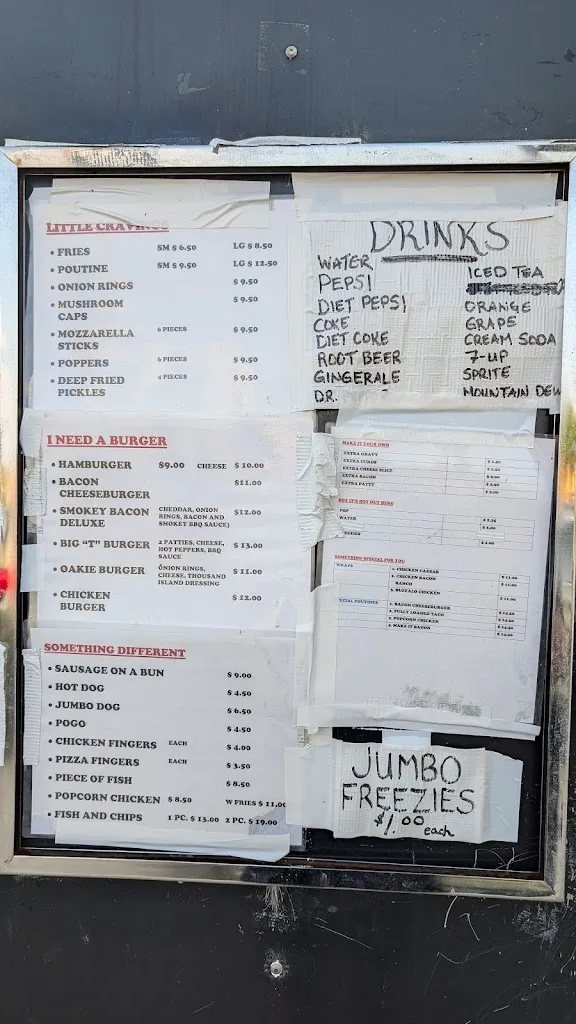 LITTLE CRAVINGS
• FRIES SM $ 6.50 LG $ 8.50
• POUTINE SM $ 9.50 LG $ 12.50
• ONION RINGS $ 9.50
• MUSHROOM $ 9.50
CAPS
• MOZZARELLA 6 PIECES $ 9.50
STICKS
• POPPERS 6 PIECES $ 9.50
• DEEP FRIED 4 PIECES $ 9.50
PICKLES
I NEED A BURGER
• HAMBURGER $9.00 CHEESE $ 10.00
• BACON $11.00
CHEESEBURGER
• SMOKEY BACON CHEDDAR, ONION $12.00
DELUXE RINGS, BACON AND
SMOKEY BBQ SAUCE)
• BIG "T" BURGER 2 PATTIES, CHEESE, $ 13.00
HOT PEPPERS, BBQ
SAUCE
• OAKIE BURGER ONION RINGS, $ 11.00
CHEESE, THOUSAND
ISLAND DRESSING
• CHICKEN $ 12.00
BURGER
SOMETHING DIFFERENT
• SAUSAGE ON A BUN $ 9.00
• HOT DOG $ 4.50
• JUMBO DOG $ 6.50
• POGO $ 4.50
• CHICKEN FINGERS EACH $ 4.00
• PIZZA FINGERS EACH $ 3.50
• PIECE OF FISH $ 8.50
• POPCORN CHICKEN $ 8.50 W FRIES $ 11.00
• FISH AND CHIPS 1 PC. $ 13.00 2 PC. $ 19.00
DRINKS
WATER
PEPSI
DIET PEPSI
COKE
DIET COKE
ROOT BEER
GINGERALE
DR.
ICED TEA
ORANGE
GRAPE
CREAM SODA
7-UP
SPRITE
MOUNTAIN DEW
MAKE IT YOUR OWN
EXTRA GRAVY
EXTRA CURDS
EXTRA CHEESE SLICE
EXTRA BACON
EXTRA PATTY
BUT IT'S HOT OUT HERE
POP
WATER
SOMETHING SPECIAL FOR YOU
WRAPS 1. CHICKEN CAESAR $ 11.00
2. CHICKEN BACON $ 11.00
RANCH
3. BUFFALO CHICKEN $ 11.00
1. BACON CHEESEBURGER
2. FULLY LOADED TACO
3. POPCORN CHICKEN
4. MAKE IT BACON
JUMBO
FREEZIES
$1.00 each